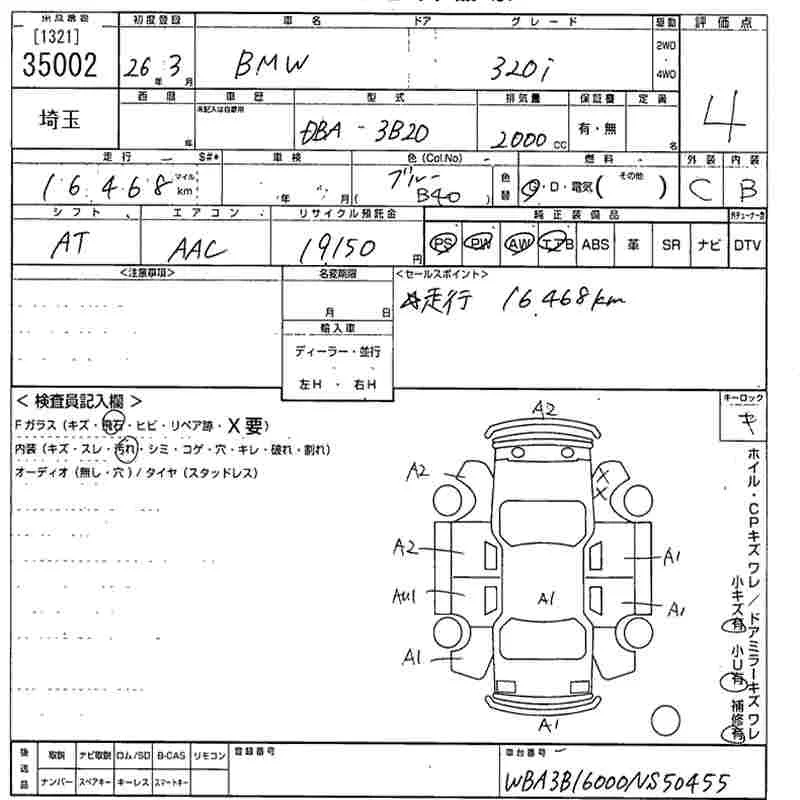 [1321]
35002
初度登録 車名 ドア グレード 駆動 評価点
26年 3月 BMW 320i 2WD・4WD 4
埼玉
西暦 車歴 型式 排気量 保証書 定員
年 DBA-3B20 2000cc 有・無 名
走行 S#* 車検 色(Col.No) 燃料 外装 内装
16468 マイル km 年 月 ブルー (B40) 色替 G・D・電気( その他 ) C B
シフト エアコン リサイクル預託金 純正装備品
AT AAC 19150円 PS PW AW エアB ABS 革 SR ナビ DTV
<注意事項> 名変期限 <セールスポイント>
月 日
☆走行 16.468km
輸入車
ディーラー・並行
左H ・ 右H
<検査員記入欄>
Fガラス(キズ・飛石・ヒビ・リペア跡・X要)
内装(キズ・スレ・汚れ・シミ・コゲ・穴・キレ・破れ・割れ)
オーディオ(無し・穴)/タイヤ(スタッドレス)
キーロック
キ
A2
A2 X X
A2 A1
AU1 A1 A1
A1
A1
ホイル・CPキズ ワレ/ドアミラーキズ ワレ
小キズ有 小U有 補修有
後送品 取説 ナビ取説 ロム/SD B-CAS リモコン 登録番号 車台番号
ナンバー スペアキー キーレス スマートキー
WBA3B16000NS50455